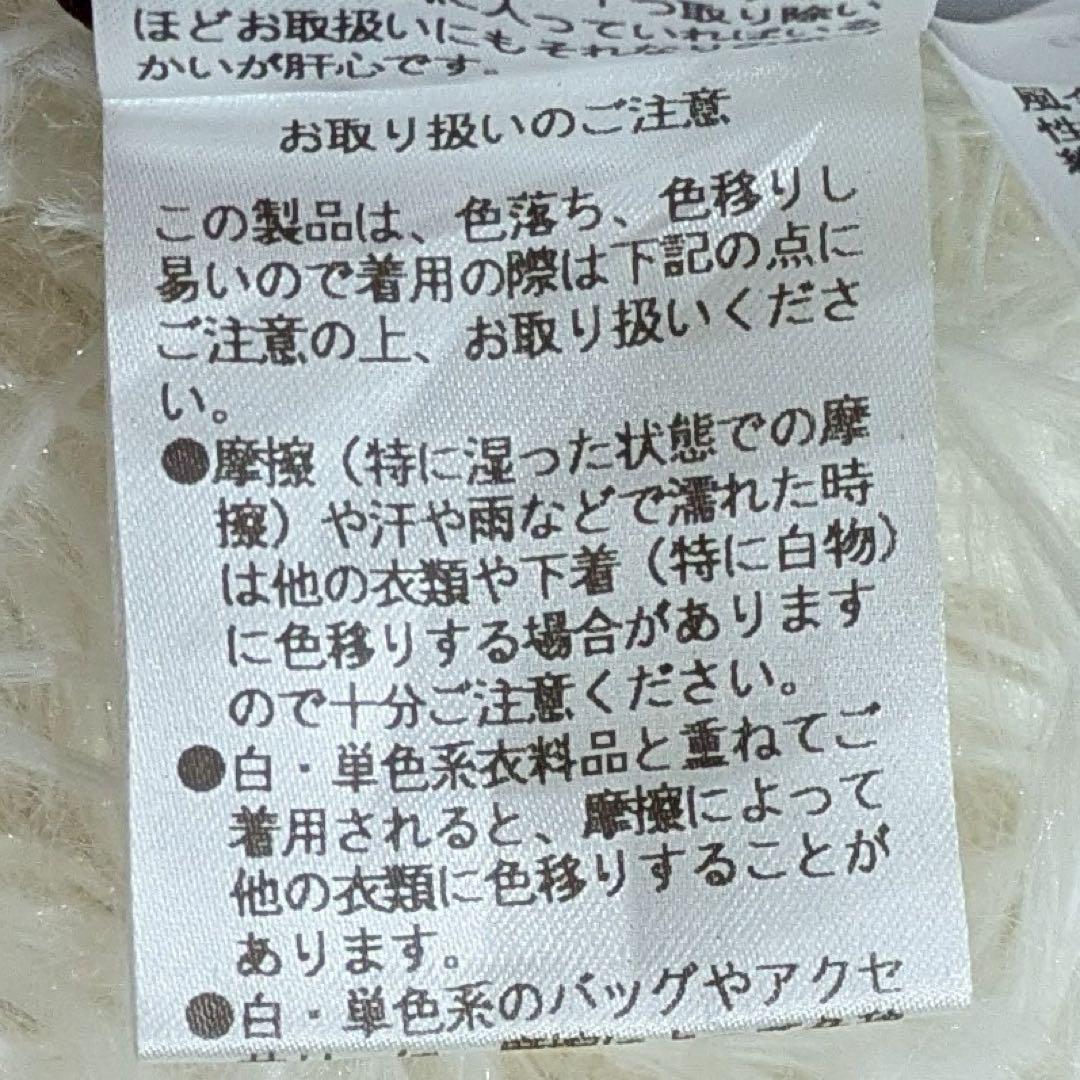 に入っ
つ取り除い
ほどお取扱いにもそれな
かいが肝心です。
お取り扱いのご注意
この製品は、色落ち、色移りし
易いので着用の際は下記の点に
ご注意の上、お取り扱いくださ
い。
●摩擦（特に湿った状態での摩
擦）や汗や雨などで濡れた時
は他の衣類や下着（特に白物）
に色移りする場合があります
ので十分ご注意ください。
●白・単色系衣料品と重ねてご
着用されると、摩擦によって
他の衣類に色移りすることが
あります。
●白・単色系のバッグやアクセ
風
性